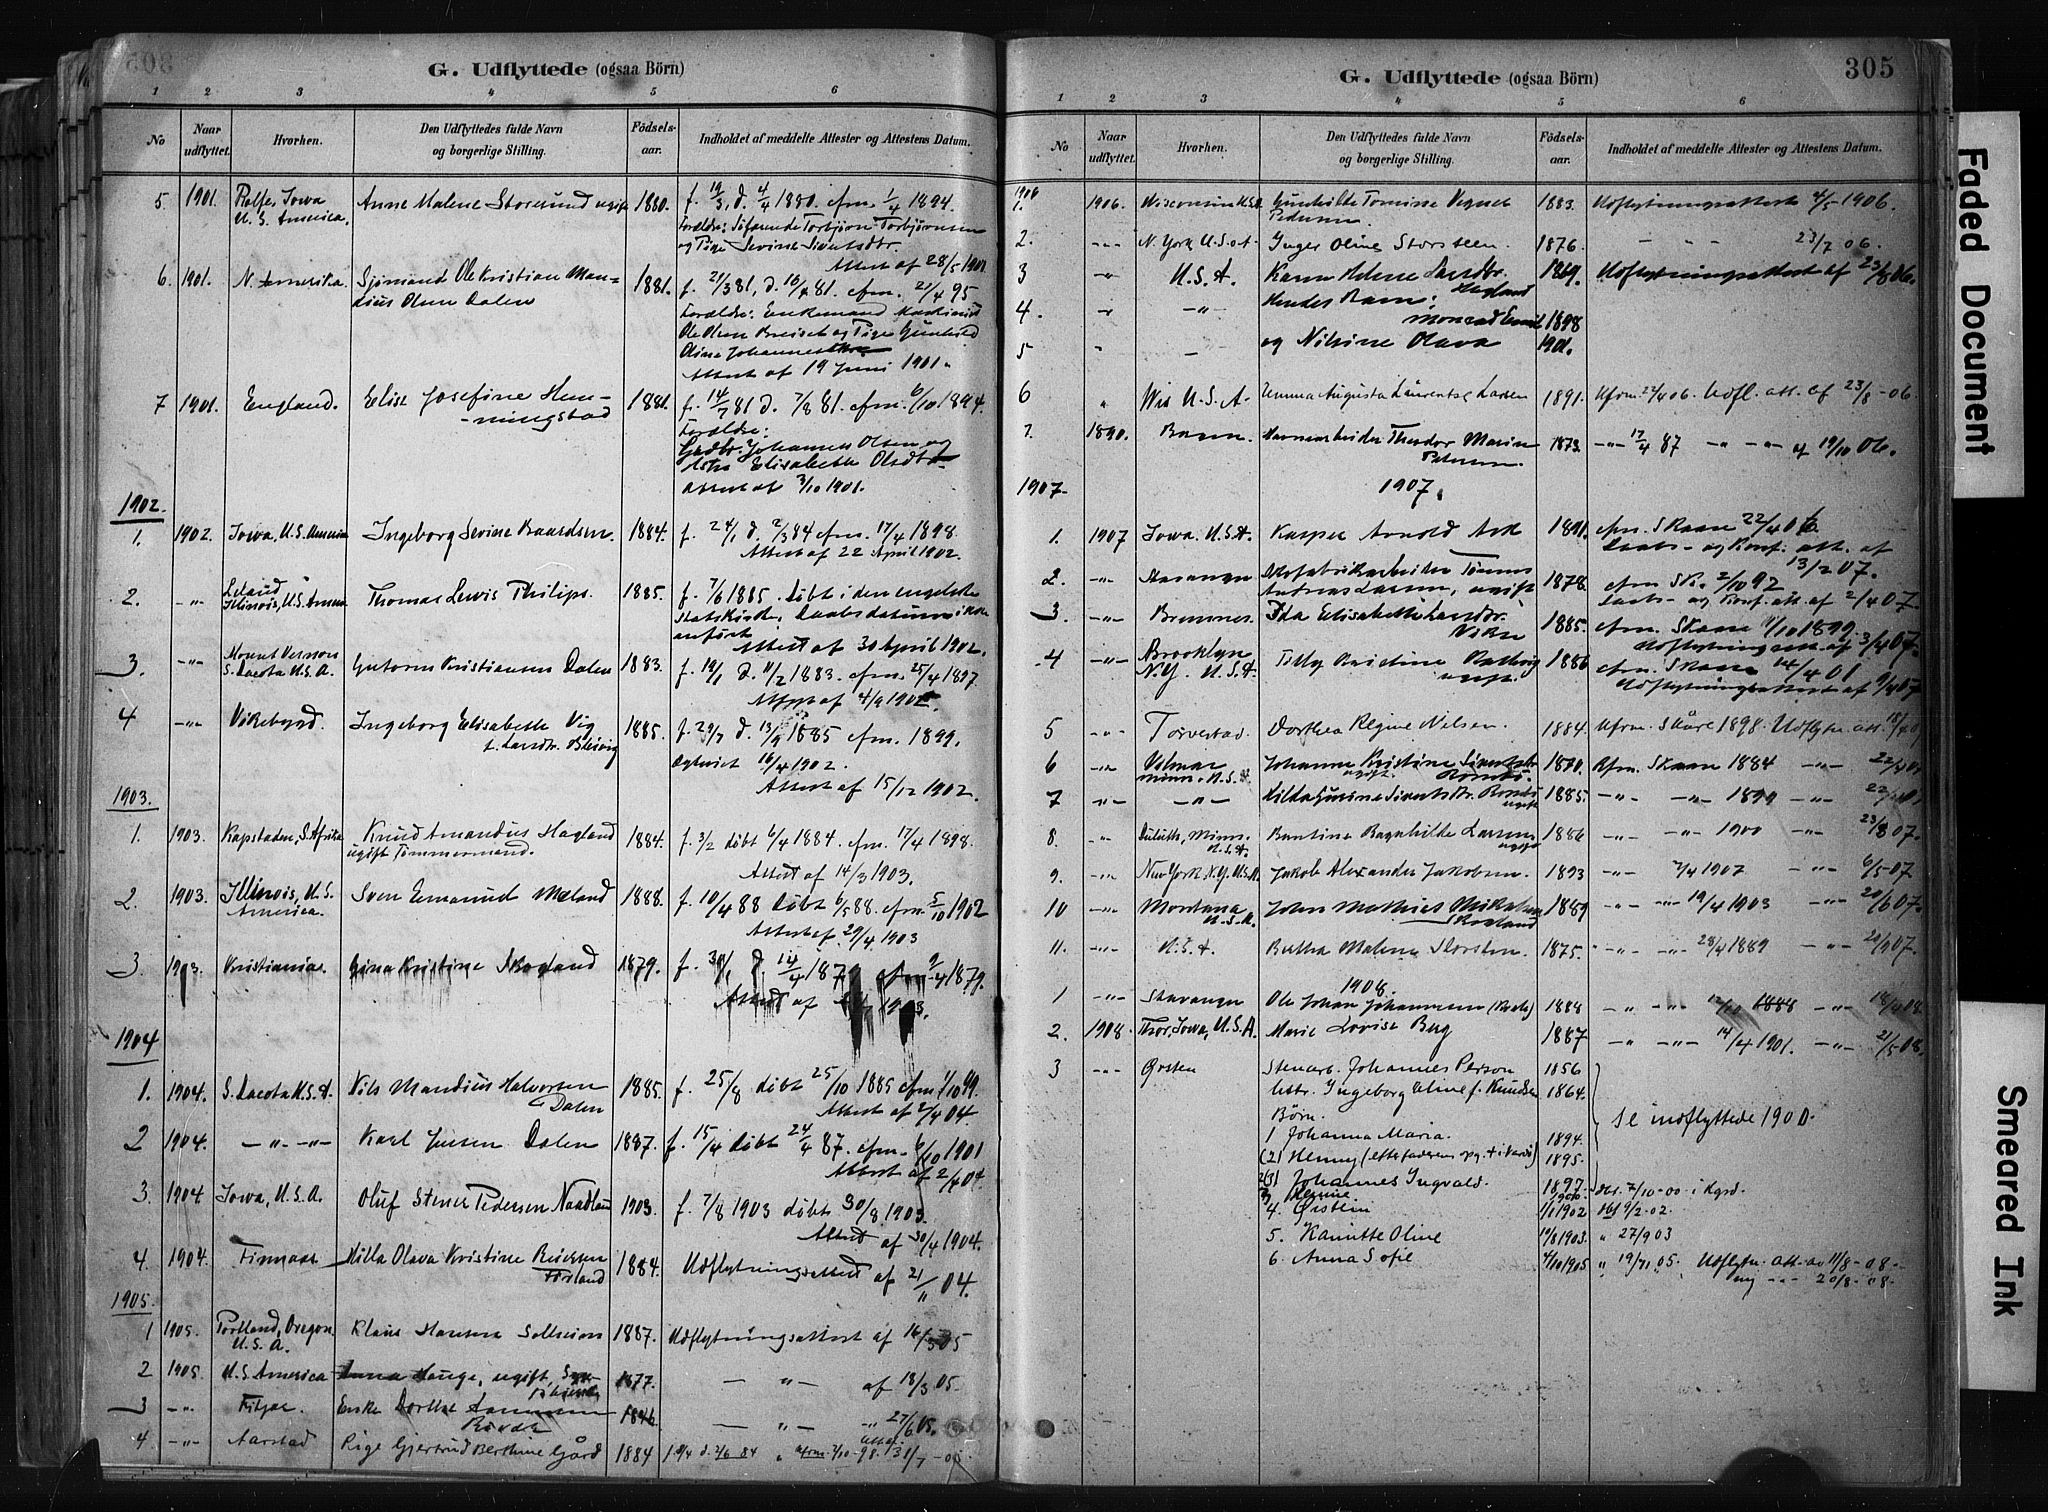 G. Udflyttede (ogsaa Börn)
1 2 3 4 5 6
No
Naar udflyttet.
Hvorhen.
Den Udflyttedes fulde Navn og borgerlige Stilling.
Födsels- aar.
Indholdet af meddelte Attester og Attestens Datum.
5. 1901. Rolfe, Iowa Anne Malene Storesund ugift 1880. f. 19/3, d. 4/4 1880. cfm. 1/4 1894.
U. S. America. Forældre: Søfarende Torbjørn Torbjørnsen
og Pige Sevine Sivertsdtr.
Attest af 28/5 1901
6. 1901. N. Amerika. Sjømand Ole Kristian Man- 1881. f. 21/3 81, d. 16/4 81. cfm. 21/4 95
dius Olsen Dalen Forældre: Enkemand
Ole Olsen og Pige Gunhild
Oline Johannesdtr.
Attest af 19 Juni 1901.
7 1901. England. Elise Josefine Hem- 1881. f. 14/7 81 d. 7/8 81. cfm. 6/10 1894.
-mingstad Forældre:
Gadbr. Johannes Olsen og
Hstr. Elisabeth Olsdtr
Attest af 3/10 1901.
1902.
1. 1902. Iowa, U.S. America Ingeborg Sevine Baardsen. 1884. f. 24/1 d. 2/3 84 cfm. 17/4 1898.
Attest af 22 April 1902.
2. -"- Leland Illinois, U.S. Amer. Thomas Lewis Philips. 1885. f. 7/6 1885. Døbt i den engelske
Statskirke, Daabsdatum ikke
anført
Attest af 30 April 1902.
3. -"- Mount Vernon Gutorm Kristiansen Dalen 1883. f. 19/1 d. 11/2 1883. cfm. 25/4 1897
S. Dacota U.S.A. Attest af 4/9 1902.
4 -"- Vikebygd. Ingeborg Elisabeth Vig 1885. f. 29/7 d. 13/9 1885 cfm. 1899.
f. Larsdtr. Bleivig Ægteviet 16/4 1902.
Attest af 15/12 1902.
1903.
1. 1903. Kapstaden, S. Afrika Knud Amandus Hagland 1884. f. 3/2 døbt 6/4 1884. cfm. 17/4 1898.
ugift Tømmermand. Attest af 14/3 1903.
2. 1903. Illinois, U.S. Sven Edmund Mæland 1888. f. 10/4 88 Døbt 6/5 88. cfm. 5/10 1902
America. Attest af 29/4 1903
3. 1903. Kristiania. Gina Kristine Skogland 1879. f. 30/1 d. 14/4 1879 cfm. 9/4 1879.
Attest af 1903.
1904
1. 1904. S. Dacota U.S.A. Nils Mandius Halvorsen 1885. f. 25/8 døbt 25/10 1885 cfm. 1/10 99.
Dalen Attest af 2/4 04.
2 1904. -"- -"- Karl Jensen Dalen 1887. f. 15/4 døbt 24/4 87. cfm. 6/10 1901
Attest af 2/4 04.
3. 1904 Iowa, U.S.A. Oluf Stener Pedersen Nordlun 1903. f. 7/8 1903 døbt 30/8 1903.
Attest af 30/4 1904.
4. 1904. Finnaas Hilla Olava Kristine 1884. Udflytningsattest af 21/11 04.
Førland
1905.
1 1905. Portland, Oregon Klaus Hansen Solheim 1887. Udflytningsattest af 16/3 05
U.S.A.
2 1905. U.S. America Anna Hauge, ugift, 1877. — " — af 18/3 05.
3 -"- Fitjar. Enke Dorthe 1846 — " — " 27/6 05.
4 -"- Aarstad Pige Gjertrud Berthine Gård 1884 f. 19/4 d. 2/6 84 " cfm. 2/10-98. 31/7-05.

G. Udflyttede (ogsaa Börn) 305
1 2 3 4 5 6
No
Naar udflyttet.
Hvorhen.
Den Udflyttedes fulde Navn og borgerlige Stilling.
Födsels- aar.
Indholdet af meddelte Attester og Attestens Datum.
1906
1. 1906. Wisconsin U.S.A Gunhilde Tomine 1883. Udflytningsattest 4/5 1906.
Pedersen
2. -"- N. York U.S.A. Inger Oline Storsteen. 1876. - - - 23/7 06.
3 -"- U.S.A. Karen Helene Larsdtr. 1869. Udflytningsattest af 23/8 06.
Hagland
4. -"- -"- Hendes Barn: Monrad Emil 1898
5 og Nilsine Olava 1901.
6 " Wis U.S.A. Emma Augusta Laurentse Larsen 1891. Kfrm. 22/4 06. Udfl. att. af 23/8-06.
7. 1890. Havnearbeider Theodor Marius 1873. -"- 17/4 87 -"- -"- af 19/10 06.
Petersen.
1907. 1907.
1. 1907 Iowa. U.S.A. Kasper Arnold Ask 1891. cfm. Skaare 22/4 06.
Daabs- og Konf. att. af
13/2 07.
2. -"- Stavanger 1878. cfm Sk. 2/10 92
Andreas Larsen, ugift Daabs- og Konf. att. af 2/4 07
3. -"- Bremnes. Ida Elisabeth Larsdtr. 1885. cfm. Skaare 1/10 1899.
Viken Udflytningsatt. af 3/4 07.
4 -"- Brooklyn Tilly Kristine 1886 cfm. Skaare 14/4 01
N.Y. U.S.A. ugift. Udflytningsattest af 9/4 07
5 -"- Torvestad. Dorthea Regine Nilsen. 1884. Kfrm. Skåre 1898. Udflytn. att. 18/4 07
6 -"- Johanne Kristine 1870. Kfm. Skaare 1884 -"- 22/4 07
Minn. U.S.A. ugift.
7 -"- -"- Hilda Gurine Sivertsdtr. 1885. -"- -"- 1899 -"- 22/4 07.
ugift
8. -"- Duluth, Minn. Bertine Ragnhilde Larsen 1886 -"- -"- 1900 -"- 23/8 07.
U.S.A. ugift
9. -"- New York N.Y. U.S.A Jakob Alexander Jakobsen. 1893 -"- 7/4 1907 -"- 6/5-07
10 -"- Montana Johan Mathias Mikalsen 1889 -"- -"- 19/4 1903 -"- 20/6 07.
U.S.A. Skogland
11. -"- U.S.A. Bertha Malene Storsten. 1875. -"- -"- 28/4 1889 -"- 20/9 07.
1908.
1 -"- Stavanger Ole Johan Johannesen 1888 -"- -"- 1888 -"- 18/4 08.
2. 1908. Thor, Iowa, U.S.A. Marie Lovise Berg 1887 -"- -"- 14/4 1901. -"- 21/5 08.
3 -"- Ørsten Stenarb. Johannes Person 1856
Hstr. Ingeborg Oline f. Knudsen 1864.
Børn. Se indflyttede 1900.
1 Johanna Maria. 1894.
(2) Henny (efter faderens opg. † i Vardø) 1895.
2(3) Johannes Ingvald. 1897
3 Henne 1900 dbt. 7/10-00 i Kgsd.
4. Øistein 1/1 1902 dbt 9/2-02.
5. Kamitte Oline 19/8 1903. " 27/9 03
6. Anna Sofie 4/10 1905 " 19/11 05. Udflytn. att. av 11/8-08-
ny -"- 20/8-08-

Faded Document
Smeared Ink